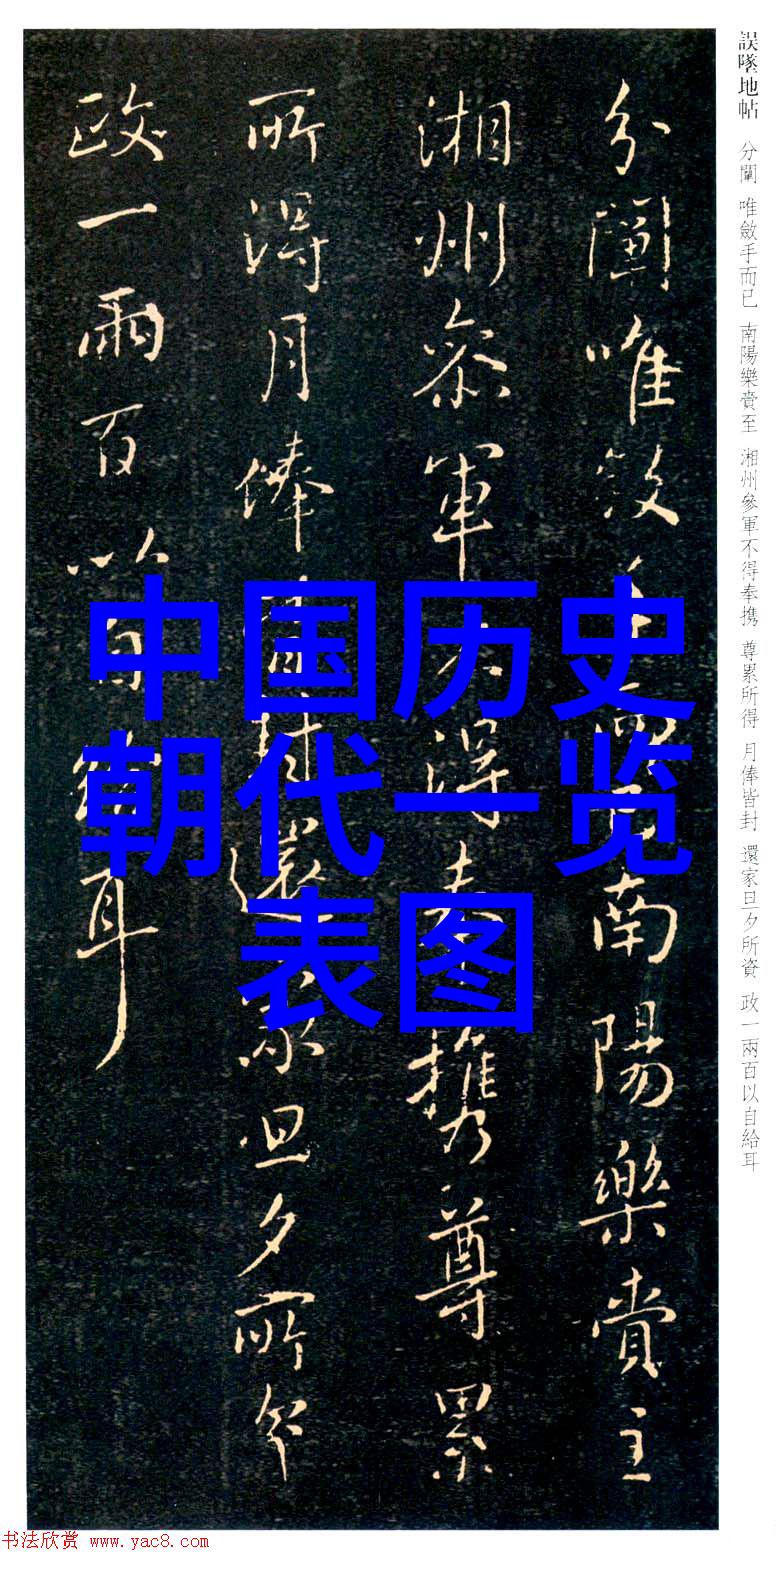 誤墜地帖 分闈 唯斂手而已 南陽樂賞至 湘州參軍不得奉携 尊累所得 月俸皆封 還家旦夕所資 政一兩百以自給耳
分闈唯斂手 南陽樂賞至
湘州參軍不得奉携尊累
所得月俸皆封還家旦夕所資
政一兩百以自給耳
中国历史
朝代一览
表图
书法欣赏 www.yac8.com